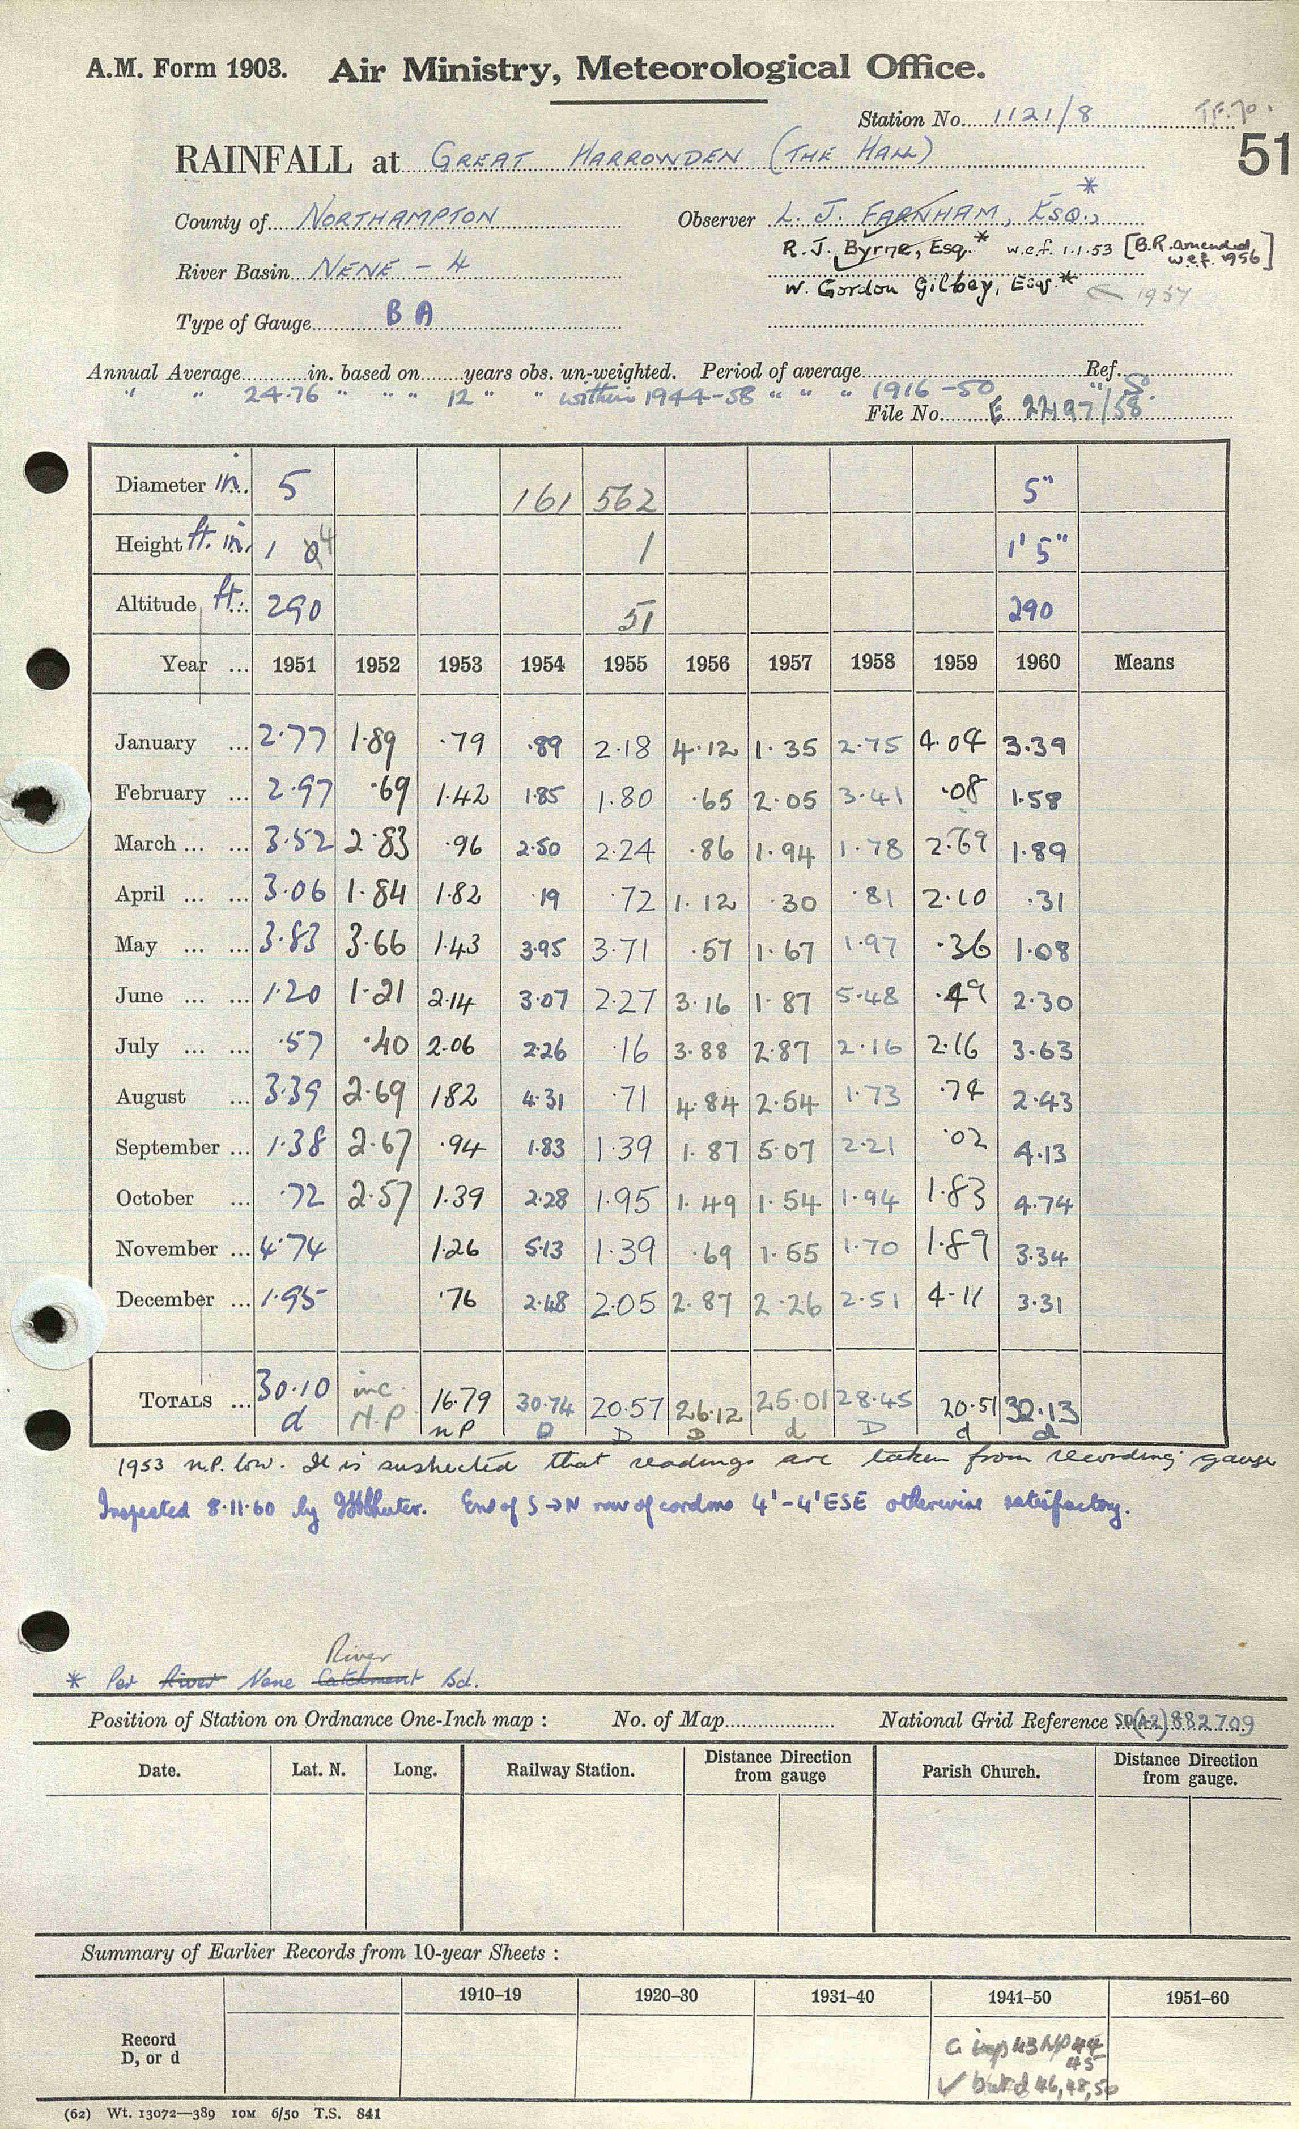 A.M. Form 1903. Air Ministry, Meteorological Office.
Station No. 1121/8
51
RAINFALL at GREAT HARROWDEN (THE HALL)
County of NORTHAMPTON Observer L. J. FARNHAM, ESQ., *
R. J. Byrne, Esq. * w.e.f. 1.1.53 [B.R. amended w.e.f. 1956]
River Basin NENE - 4
W. Gordon Gilbey, Esq. * ← 1957
Type of Gauge B A
Annual Average in. based on years obs. un-weighted. Period of average Ref.
" " 24.76 " " " 12 " " within 1944-58 " " " 1916-50 " S.
File No. E 22197/58
Diameter in. 5 161 562 5"
Height ft. in. 1 4 1 1' 5"
Altitude ft. 290 51 290
Year ... 1951 1952 1953 1954 1955 1956 1957 1958 1959 1960 Means
January ... 2.77 1.89 .79 .89 2.18 4.12 1.35 2.75 4.04 3.39
February ... 2.97 .69 1.42 1.85 1.80 .65 2.05 3.41 .08 1.58
March ... ... 3.52 2.83 .96 2.50 2.24 .86 1.94 1.78 2.69 1.89
April ... ... 3.06 1.84 1.82 .19 .72 1.12 .30 .81 2.10 .31
May ... ... 3.83 3.66 1.43 3.95 3.71 .57 1.67 1.97 .36 1.08
June ... ... 1.20 1.21 2.14 3.07 2.27 3.16 1.87 5.48 .49 2.30
July ... ... .57 .40 2.06 2.26 .16 3.88 2.87 2.16 2.16 3.63
August ... 3.39 2.69 1.82 4.31 .71 4.84 2.54 1.73 .74 2.43
September ... 1.38 2.67 .94 1.83 1.39 1.87 5.07 2.21 .02 4.13
October ... .72 2.57 1.39 2.28 1.95 1.49 1.54 1.94 1.83 4.74
November ... 4.74 1.26 5.13 1.39 .69 1.55 1.70 1.89 3.34
December ... 1.95 .76 2.48 2.05 2.87 2.26 2.51 4.11 3.31
TOTALS ... 30.10 inc. 16.79 30.74 20.57 26.12 25.01 28.45 20.51 32.13
d N.P. n P D D D d D d d
1953 n.P. low. It is suspected that readings are taken from recording gauge
Inspected 8.11.60 by End of S→N row of 4'-4' ESE otherwise satisfactory.
River
* Per River Nene Catchment Bd.
Position of Station on Ordnance One-Inch map : No. of Map National Grid Reference SP(42)882709
Date. Lat. N. Long. Railway Station. Distance Direction from gauge Parish Church. Distance Direction from gauge.
Summary of Earlier Records from 10-year Sheets :
1910–19 1920–30 1931–40 1941–50 1951–60
Record
D, or d
43 NP 44
45
✓ but d 46, 48, 50
(62) Wt. 13072—389 10M 6/50 T.S. 841